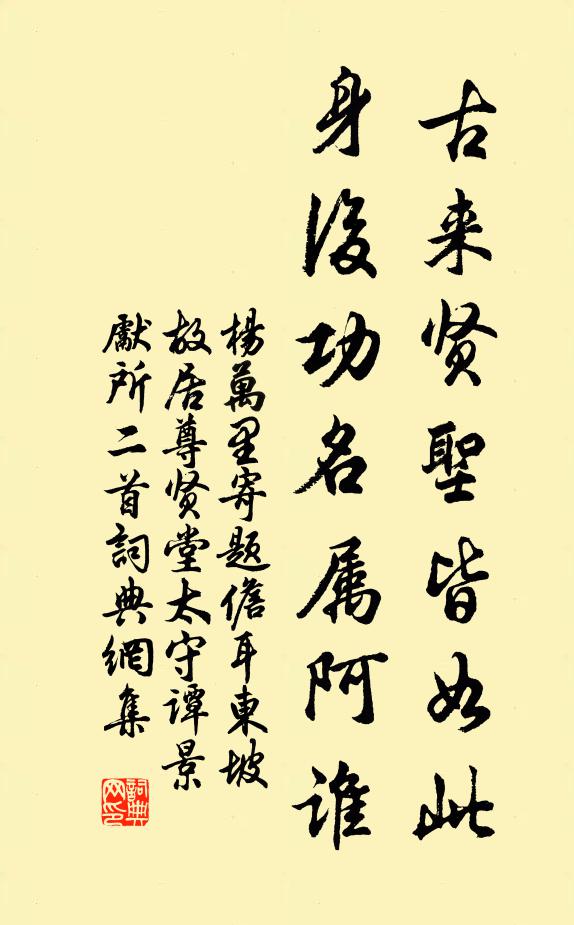 古来贤聖皆如此
身後功名属阿谁
楊萬里寄题儋耳東坡
故居尊贤堂太守谭景
獻所二首詞典網集
詞典网印